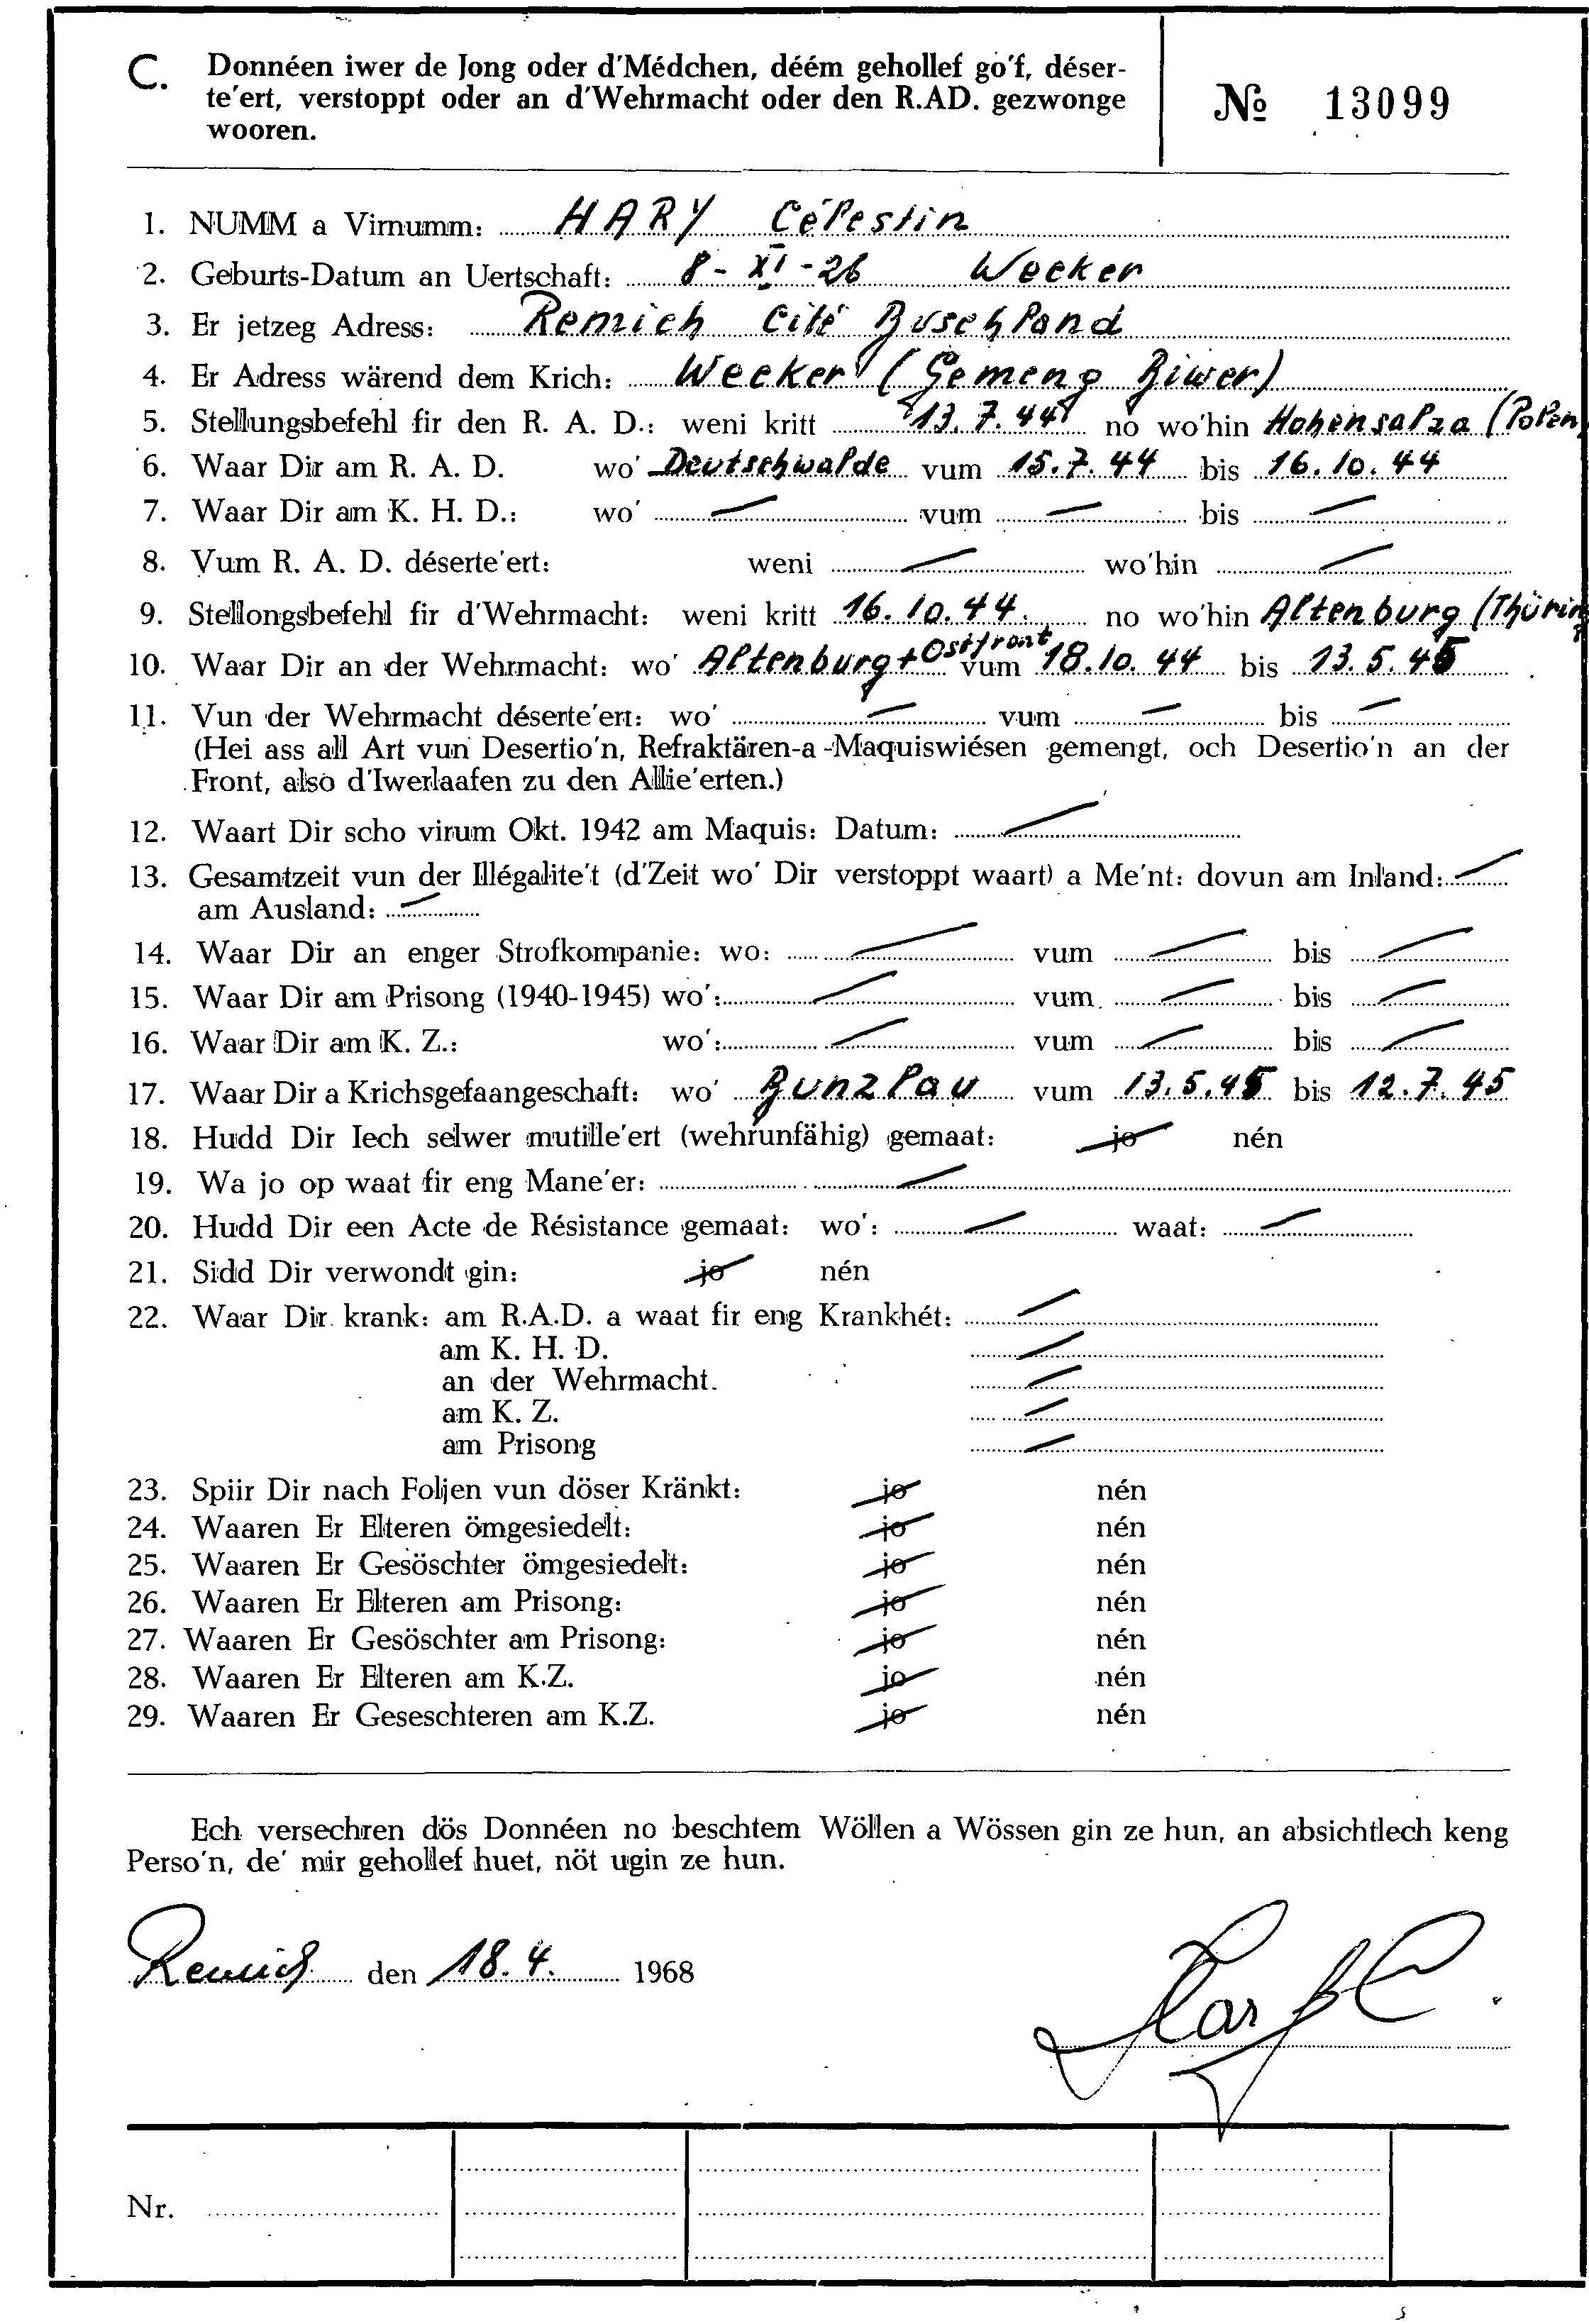 C. Donnéen iwer de Jong oder d'Médchen, déém gehollef go'f, déser-
te'ert, verstoppt oder an d'Wehrmacht oder den R.AD. gezwonge
wooren.
№ 13099
1. NUMM a Virnumm: HARY Célestin
2. Geburts-Datum an Uertschaft: 8-XI-26 Wecker
3. Er jetzeg Adress: Remich Cité Buschland
4. Er Adress wärend dem Krich: Wecker (Gemeng Biwer)
5. Stellungsbefehl fir den R. A. D.: weni kritt 13.7.44 no wo'hin Hohensalza (Polen)
6. Waar Dir am R. A. D. wo' Deutschwalde vum 15.7.44 bis 16.10.44
7. Waar Dir am K. H. D.: wo' — vum — bis —
8. Vum R. A. D. déserte'ert: weni — wo'hin —
9. Stellongsbefehl fir d'Wehrmacht: weni kritt 16.10.44. no wo'hin Altenburg (Thüring
10. Waar Dir an der Wehrmacht: wo' Altenburg + Ostfront vum 18.10.44 bis 13.5.45
11. Vun der Wehrmacht déserte'ert: wo' — vum — bis —
(Hei ass all Art vun Desertio'n, Refraktären-a-Maquiswiésen gemengt, och Desertio'n an der
Front, also d'Iwerlaafen zu den Allie'erten.)
12. Waart Dir scho virum Okt. 1942 am Maquis: Datum: —
13. Gesamtzeit vun der Illégalite't (d'Zeit wo' Dir verstoppt waart) a Me'nt: dovun am Inland: —
am Ausland: —
14. Waar Dir an enger Strofkompanie: wo: — vum — bis —
15. Waar Dir am Prisong (1940-1945) wo': — vum — bis —
16. Waar Dir am K. Z.: wo': — vum — bis —
17. Waar Dir a Krichsgefaangeschaft: wo' Bunzlau vum 13.5.45 bis 12.7.45
18. Hudd Dir Iech selwer mutille'ert (wehrunfähig) gemaat: jo nén
19. Wa jo op waat fir eng Mane'er: —
20. Hudd Dir een Acte de Résistance gemaat: wo': — waat: —
21. Sidd Dir verwondt gin: jo nén
22. Waar Dir krank: am R.A.D. a waat fir eng Krankhét: —
am K. H. D. —
an der Wehrmacht. —
am K. Z. —
am Prisong —
23. Spiir Dir nach Foljen vun döser Kränkt: jo nén
24. Waaren Er Elteren ömgesiedelt: jo nén
25. Waaren Er Gesöschter ömgesiedelt: jo nén
26. Waaren Er Elteren am Prisong: jo nén
27. Waaren Er Gesöschter am Prisong: jo nén
28. Waaren Er Elteren am K.Z. jo nén
29. Waaren Er Geseschteren am K.Z. jo nén
Ech versechren dös Donnéen no beschtem Wöllen a Wössen gin ze hun, an absichtlech keng
Perso'n, de' mir gehollef huet, nöt ugin ze hun.
Remich den 18.4. 1968
Hary C.
Nr.